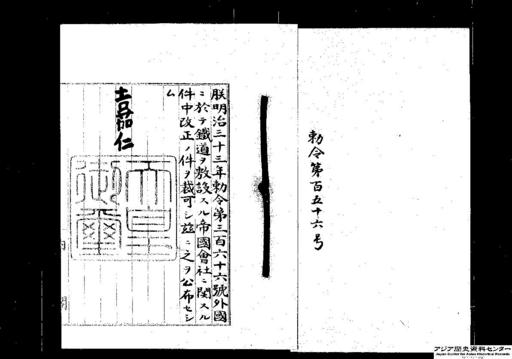 勅令第百五十六号
朕明治三十三年勅令第三百六十六號外國
ニ於テ鐵道ヲ敷設スル帝國會社ニ関スル
件中改正ノ件ヲ裁可シ茲ニ之ヲ公布セシ
ム
嘉仁
天皇御璽
アジア歴史資料センター
Japan Center for Asian Historical Records